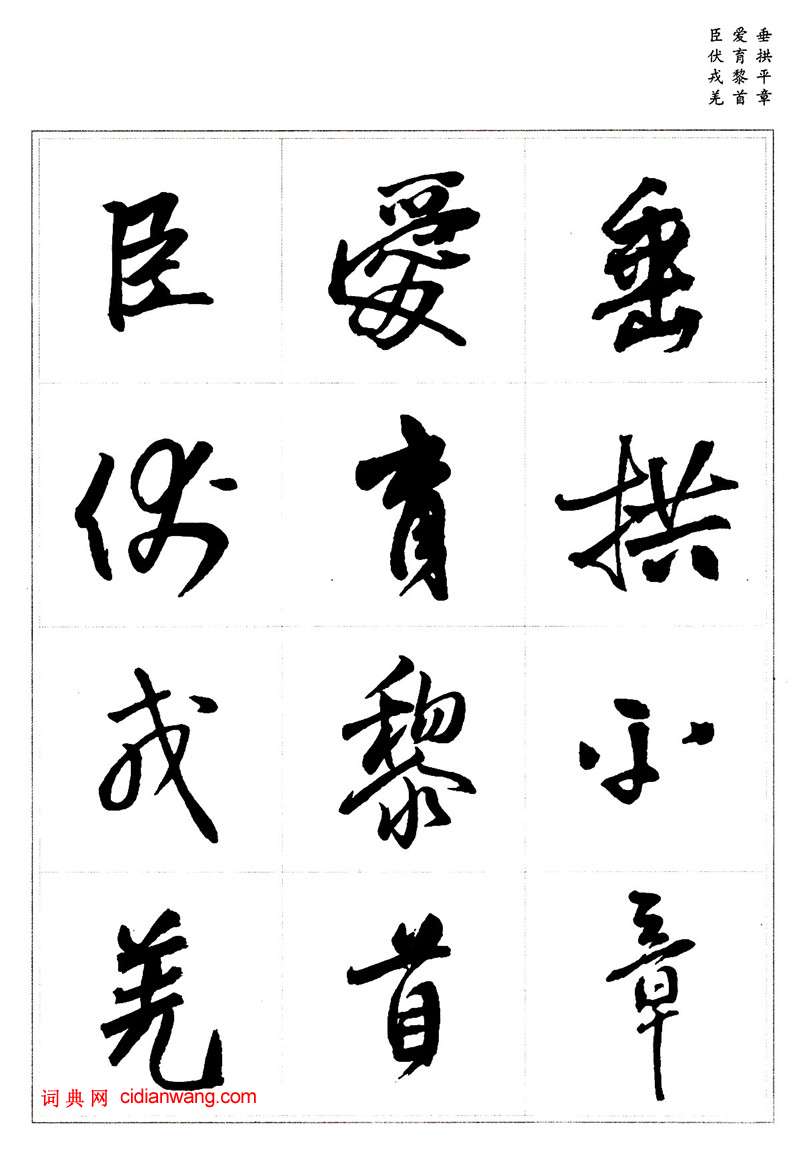 垂拱平章
爱育黎首
臣伏戎羌
垂拱平章
愛育黎首
臣伏戎羌
词典网 cidianwang.com